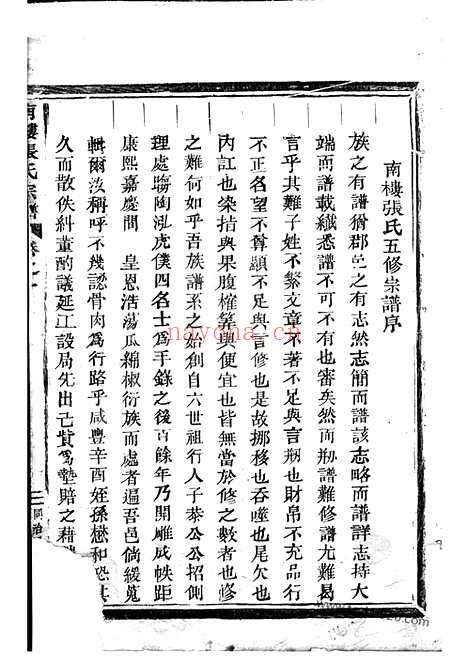 南樓張氏五修宗譜序
族之有譜猶郡邑之有志然志簡而譜該志略而譜詳志持大
端而譜載纖悉譜不可不有也審矣然而刱譜難修譜尤難曷
言乎其難子姓不繁文章不著不足與言刱也財帛不充品行
不正名望不尊顯不足與言修也是故挪移也吞噬也尾欠也
內訌也染指與果腹權篡與便宜也皆無當於修之數者也修
之難何如乎吾族譜系之刱創自六世祖行人子恭公公招側
理處賜陶泓虎僕四名士為手錄之後百餘年乃開雕成帙距
康熙嘉慶間 皇恩浩蕩瓜綿椒衍族而處者遍吾邑倘緩蒐
輯爾汝稱呼不幾認骨肉為行路乎咸豐辛酉姪孫懋和恐其
久而散佚糾董酌議延工設局先出己貲為墊賠之藉
南樓張氏宗譜 卷之一
nayona.cn